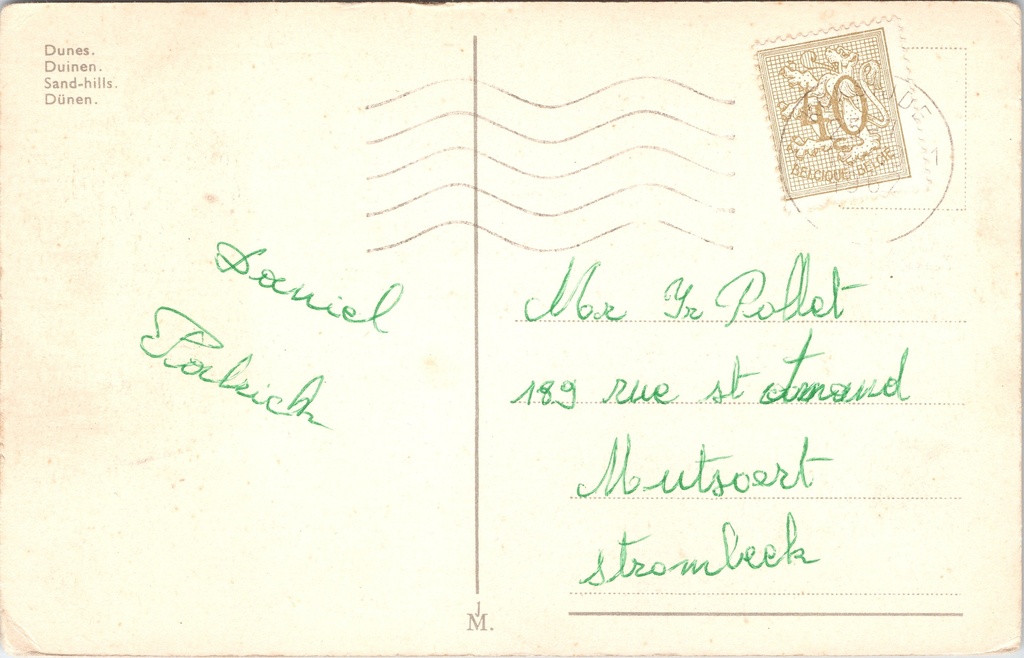 Dunes.
Duinen.
Sand-hills.
Dünen.
40
BELGIQUE-BELGIE
1
Daniel
Patrick
Mr Yr Pollet
189 rue st Amand
Mutsaert
strombeek
JM.